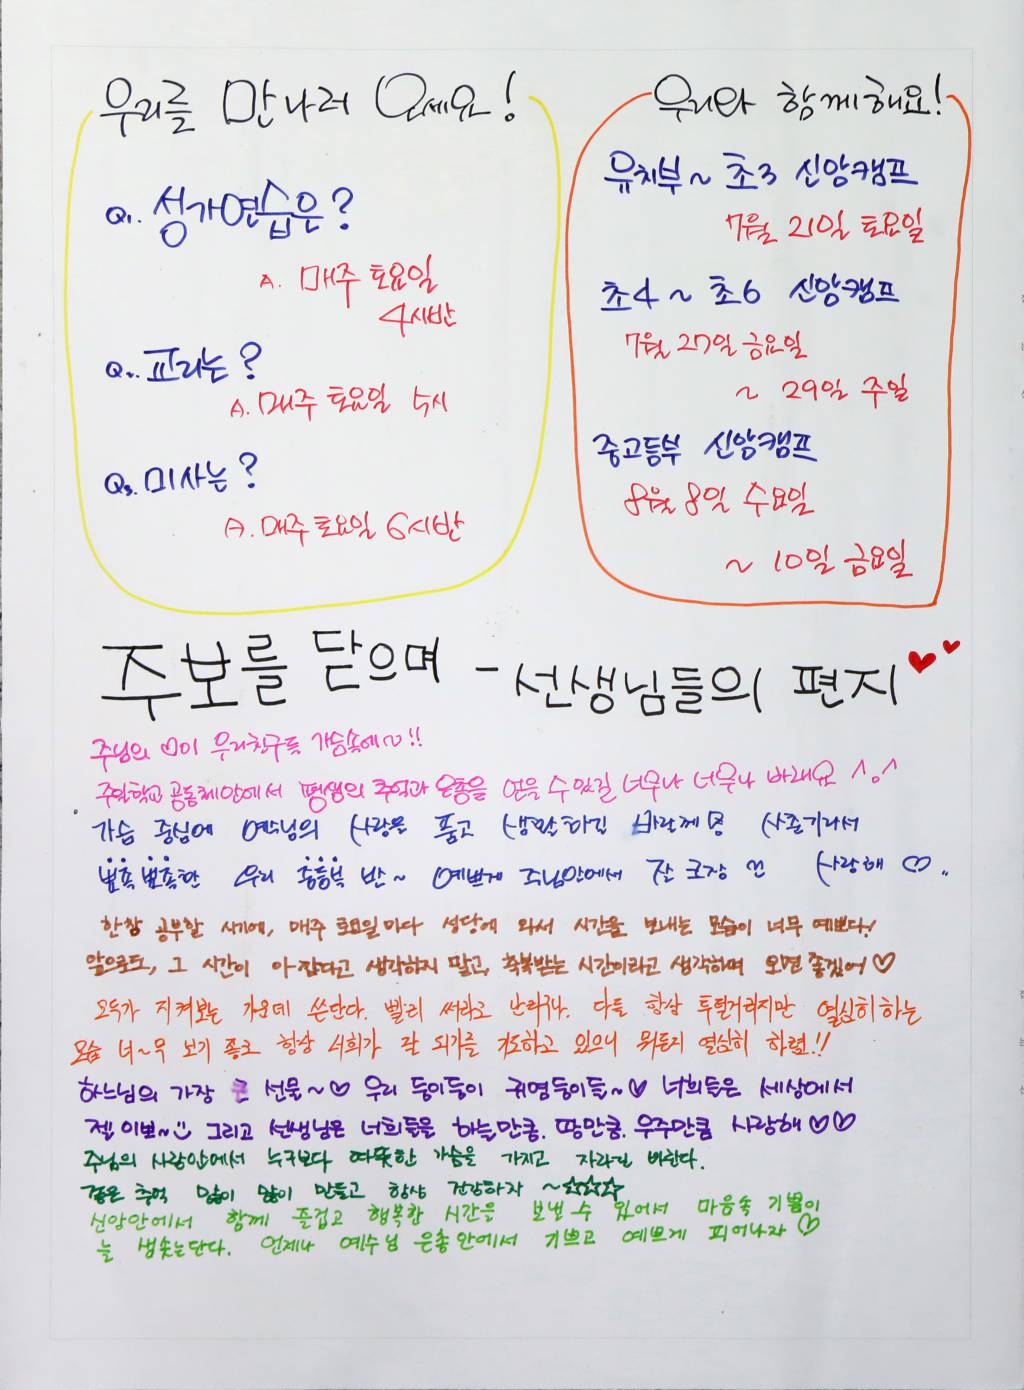 우리를 만나러 오세요!
Q1. 성가연습은?
A. 매주 토요일
4시반
Q2. 교리는?
A. 매주 토요일 5시
Q3. 미사는?
A. 매주 토요일 6시반
우리와 함께해요!
유치부 ~ 초3 신앙캠프
7월 21일 토요일
초4 ~ 초6 신앙캠프
7월 27일 금요일
~ 29일 주일
중고등부 신앙캠프
8월 8일 수요일
~ 10일 금요일
주보를 닫으며 - 선생님들의 편지
주님의 ♡이 우리친구들 가슴속에~!!
주일학교 공동체안에서 평생의 추억과 은총을 얻을 수 있길 너무나 너무나 바래요 ^.^
가슴 중심에 예수님의 사랑을 품고 생활하길 바랄께 사춘기라서
뾰족뾰족한 우리 중등부 반~ 예쁘게 주님안에서 잘 크장 사랑해 ♡..
한창 공부할 시기에, 매주 토요일마다 성당에 와서 시간을 보내는 모습이 너무 예쁘다!
앞으로도, 그 시간이 아깝다고 생각하지 말고, 축복받는 시간이라고 생각하며 오면 좋겠어 ♡
모두가 지켜보는 가운데 쓴단다. 빨리 써라고 난리구나. 다들 항상 투덜거리지만 열심히 하는
모습 너~무 보기 좋고 항상 너희가 잘 되기를 기도하고 있으니 뭐든지 열심히 하렴!!
하느님의 가장 큰 선물~♡ 우리 둥이둥이 귀염둥이들~♡ 너희들은 세상에서
젤 이뻐~ 그리고 선생님은 너희들을 하늘만큼. 땅만큼. 우주만큼 사랑해♡♡
주님의 사랑안에서 누구보다 따뜻한 가슴을 가지고 자라길 바란다.
좋은 추억 많이 많이 만들고 항상 건강하자 ~☆☆☆
신앙안에서 함께 즐겁고 행복한 시간을 보낼 수 있어서 마음속 기쁨이
늘 샘솟는단다. 언제나 예수님 은총안에서 기쁘고 예쁘게 피어나자♡